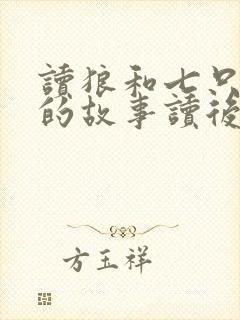 讀狼和七只
的故事讀後
方玉祥